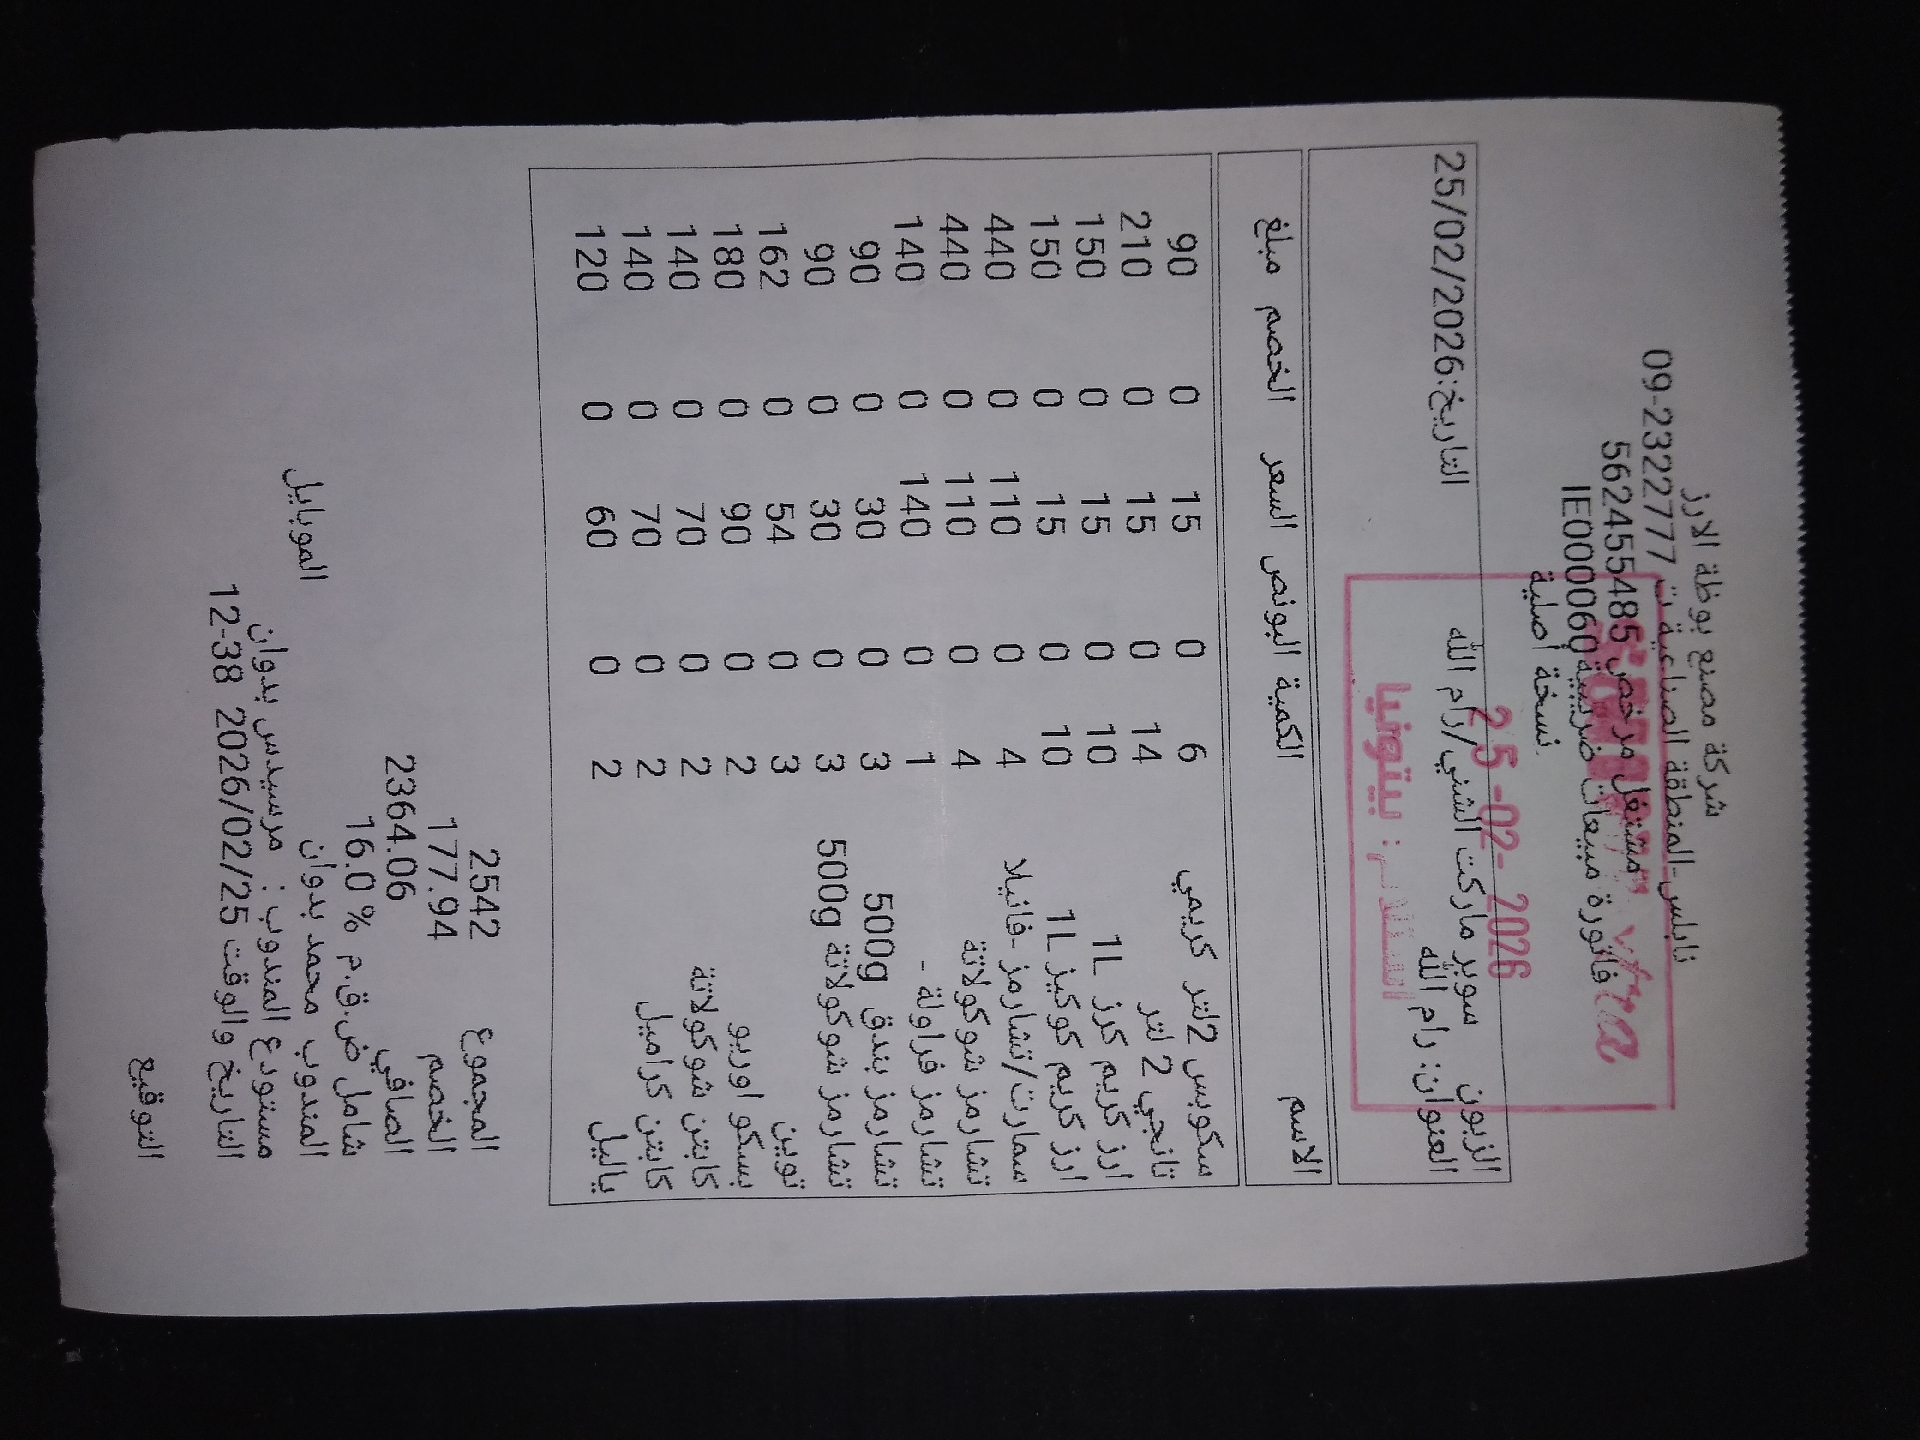 شركة مصنع بوظة الارز
نابلس-المنطقة الصناعية ت 09-2322777
مشتغل مرخص 562455485
فاتورة مبيعات ضريبية IE000060
نسخة أصلية
Xtra
25-02-2026
استلام: بيتونيا
الزبون سوبر ماركت الشني/رام الله التاريخ:25/02/2026
العنوان: رام الله
الاسم الكمية البونص السعر الخصم مبلغ
سكوبس 2لتر كريمي 6 0 15 0 90
تانجي 2 لتر 14 0 15 0 210
ارز كريم كرز 1L 10 0 15 0 150
ارز كريم كوكيز 1L 10 0 15 0 150
سمارت/تشارمز -فانيلا 4 0 110 0 440
تشارمز شوكولاتة 4 0 110 0 440
تشارمز فراولة - 1 0 140 0 140
تشارمز بندق 500g 3 0 30 0 90
تشارمز شوكولاتة 500g 3 0 30 0 90
توين 3 0 54 0 162
بسكو اوريو 2 0 90 0 180
كابتن شوكولاتة 2 0 70 0 140
كابتن كراميل 2 0 70 0 140
ياليل 2 0 60 0 120
المجموع 2542
الخصم 177.94
الصافي 2364.06
شامل ض.ق.م % 16.0
المندوب محمد بدوان الموبايل
مستودع المندوب : مرسيدس بدوان
التاريخ والوقت 2026/02/25 12-38
التوقيع